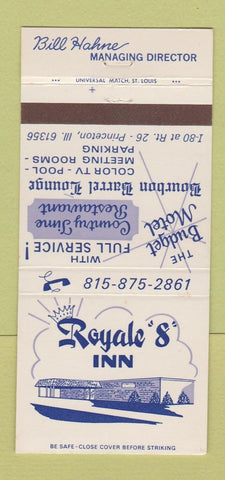 Bill Hahne
MANAGING DIRECTOR
UNIVERSAL MATCH, ST. LOUIS
I-80 at Rt. 26 - Princeton, Ill. 61356
PARKING
MEETING ROOMS -
COLOR TV - POOL -
Bourbon Barrel Lounge
Country Time
Restaurant
THE
Budget
Motel
WITH
FULL SERVICE!
815-875-2861
Royale "8"
INN
BE SAFE - CLOSE COVER BEFORE STRIKING